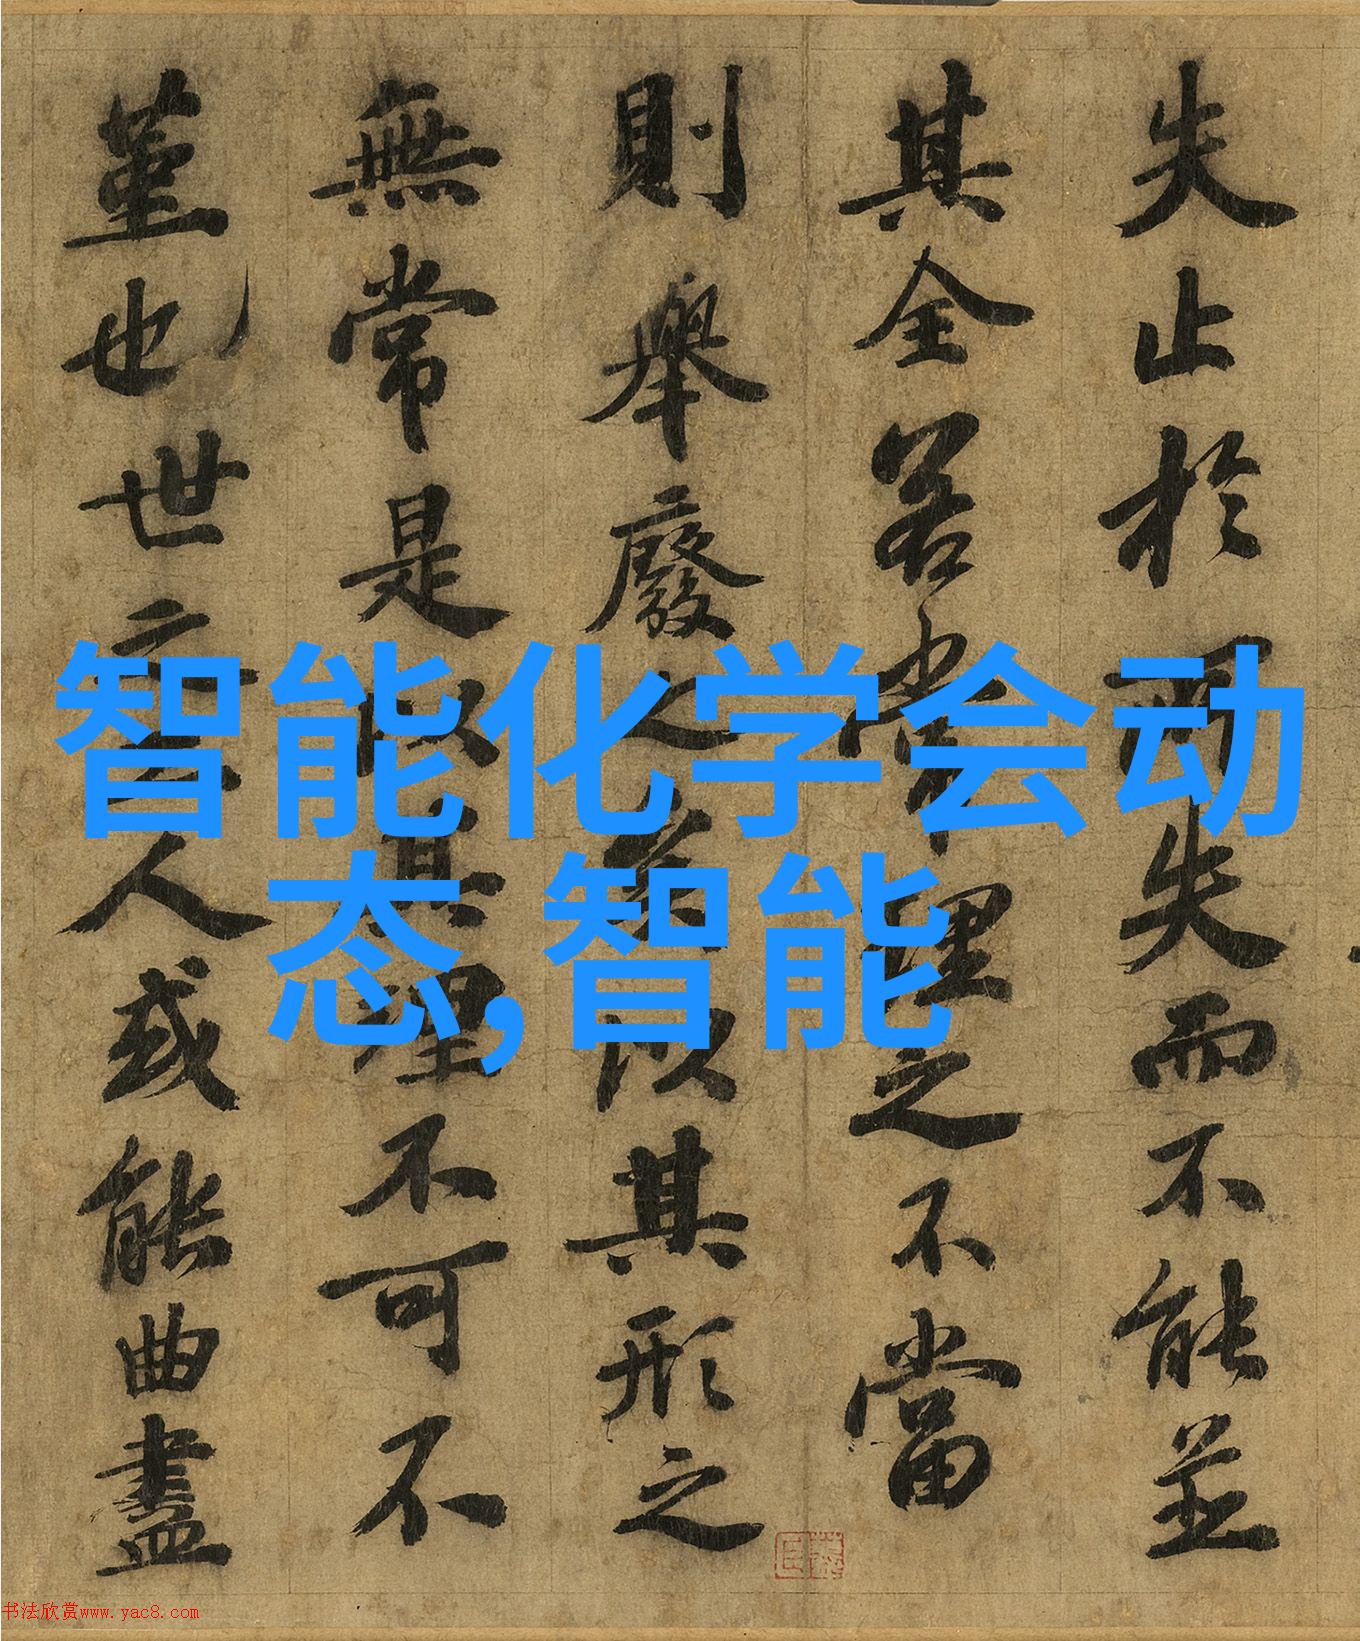 失止於所失而不能並
其全若常理之不當
則舉廢之矣以其形之
無常是以其理不可不
堇也世之工人或能曲盡
智能化学会动
态,智能
书法欣赏www.yac8.com